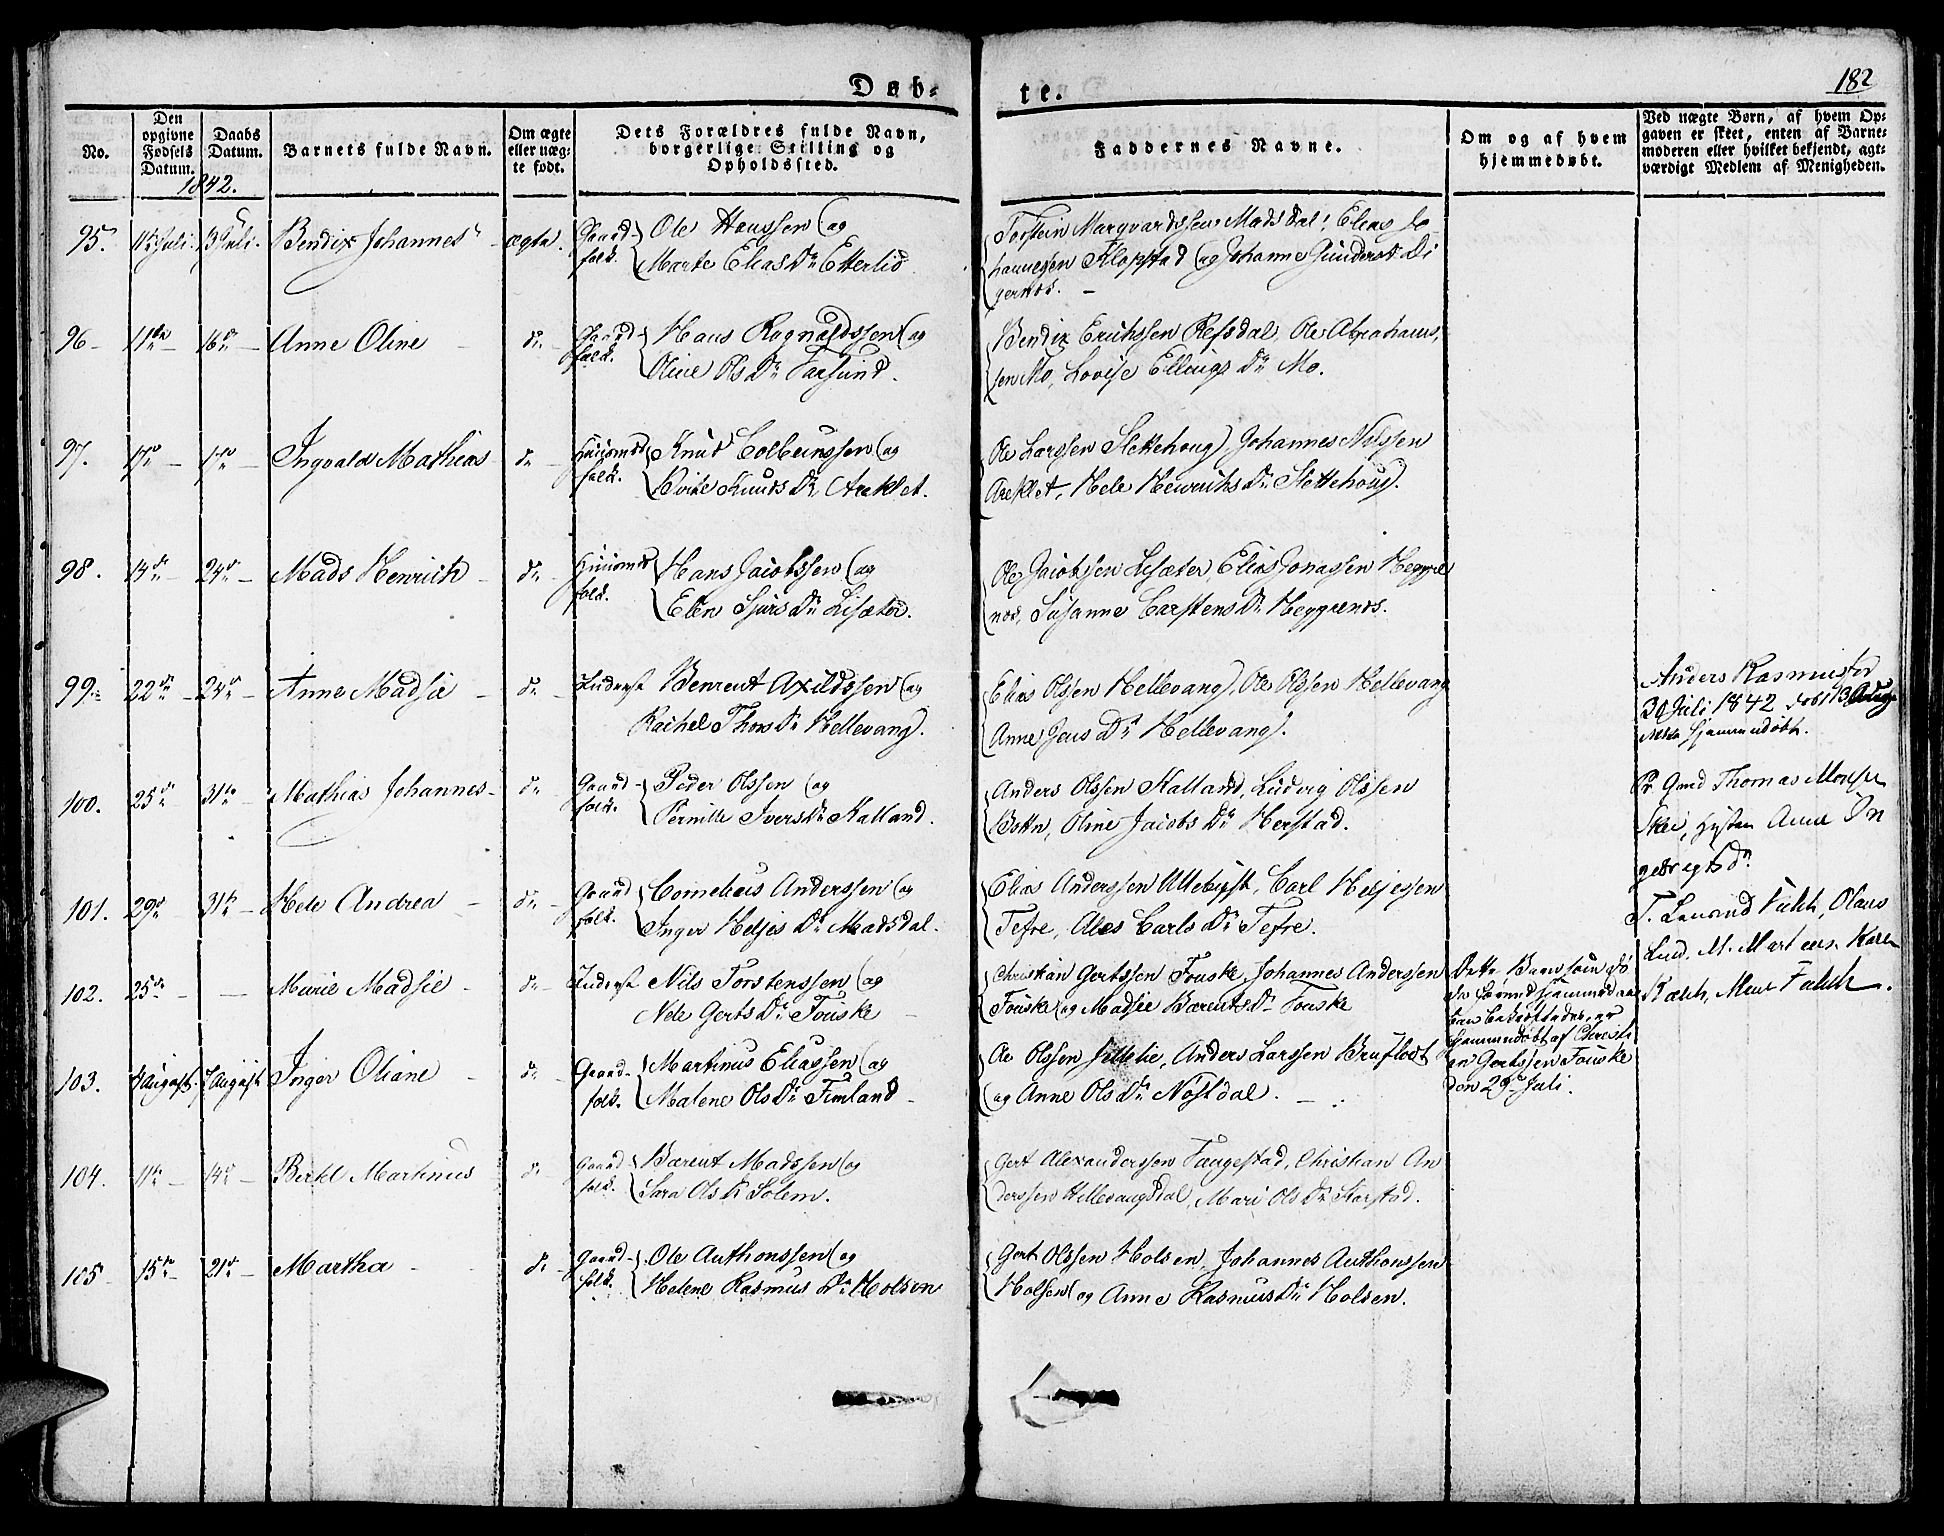 Døb-
te.
182
No.
Den opgivne Fødsels Datum.
Daabs Datum.
Barnets fulde Navn.
Om ægte eller uæg-te født.
Dets Forældres fulde Navn, borgerlige Stilling og Opholdssted.
Faddernes Navne.
Om og af hvem hjemmedøbt.
Ved uægte Børn, af hvem Op-gaven er skeet, enten af Barne-moderen eller hvilket bekjendt, agt-værdigt Medlem af Menigheden.
1842.
95. Juli. 3 Juli. Bendix Johannes ægte. Gaard- Ole Hanssen og
folk. Marte Elias Dr
Torstein Marqvardssen Madsdal, Elias Jo-
hannesen Klopstad og Johanne Gunders Dr Di
gernes. -
96 - 11te - 16de - Anne Oline - do - Gaard- Hans Rognaldssen og
folk. Oline Ols Dr Farsund.
Bendix Erichssen Refsdal, Ole Abrahams,
sen Mo, Lovise Ellings Dr Mo.
97. 17de - 17de - Ingvald Mathias do - Huusmds Knud Colbeinssen og
folk. Knuds Dr Araklet.
Ole Larssen Slettehoug, Johannes Nilssen
Araklet, Nele Henrichs Dr Slettehoug.
98. 14de - 24de - Mads Henrich - do - Huusmds Hans Jacobssen og
folk. Elen Sjurs Dr Lisæter.
Ole Jacobssen Lisæter, Elias Jonassen Heggre
nes, Susanne Carstens Dr Heggrenes.
99. 22de - 24de - Anne Madsie - do - Inderst Berent Axildssen og
Rachel Thors Dr Hellevang.
Elias Olssen Hellevang, Ole Olssen Hellevang
Anne Jens Dr Hellevang.
Anders Rasmus
30 Juli 1842 døbt 13 Aug
hjemmedøbt.
100. 25de - 31te - Mathias Johannes - do - Gaard- Peder Olssen og
folk. Pernille Ivers Dr Kalland.
Anders Olssen Kalland, Ludvig Olssen
Bottn, Oline Jacobs Dr Herstad.
Thomas
Skei, Anne In
gebregts Dr.
101. 29de 31te - Nele Andrea - do - Gaard Cornelius Anderssen og
folk. Inger Heljes Dr Madsdal.
Elias Anderssen Ullebyst, Carl Heljessen
Tefre, Ales Carls Dr Tefre.
Olaus
102. 25de - - Marie Madsie - do - Inderst Nils Torstenssen og
Nele Gerts Dr Fouske -
Christian Gertssen Fouske, Johannes Anderssen
Fouske og Madsie Bærents Dr Fouske
Dette Barn som
hjemmedøbt af Christi
an Gertssen Fouske
den 29de Juli.
103. August 7 August Inger Oliane - do - Gaard- Martinus Eliassen og
folk. Malene Ols Dr Timland -
Ole Olssen Anders Larssen Bruflodt
og Anne Ols Dr Nøstdal. -
104. 11te 14de - Bertel Martinus do - Gaard Bærent Madssen og
folk. Sara Ols Dr Solem.
Gert Alexanderssen Taugestad, Christian An
derssen Hellevangsdal, Mari Ols Dr Storstad.
105 - 15de - 21de - Martha - do - Gaard- Ole Anthonssen og
folk. Helene Rasmus Dr Holsen
Gert Olssen Holsen, Johannes Anthonssen
Holsen og Anne Rasmus Dr Holsen.